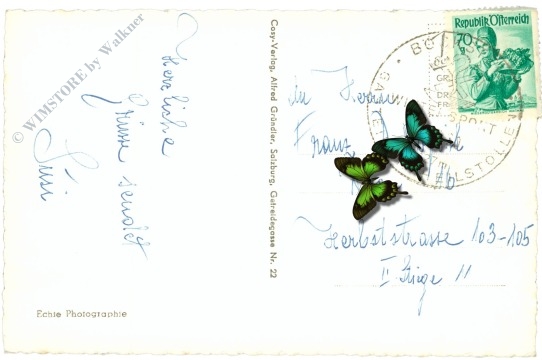 © WIMSTORE by Walkner
Herzliche
Grüsse sendet
Susi
Echte Photographie
Cosy-Verlag, Alfred Gründler, Salzburg, Getreidegasse Nr. 22
Republik Österreich
70
g
An Herrn
Franz
Herbststrasse 103-105
II Stiege 11